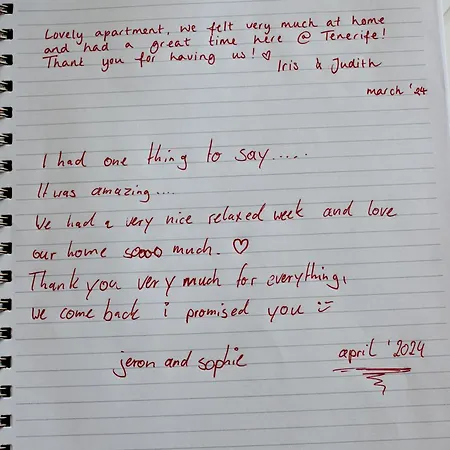 Lovely apartment, we felt very much at home
and had a great time here @ Tenerife!
Thank you for having us! ♡
Iris & Judith
march '24
I had one thing to say.....
It was amazing....
We had a very nice relaxed week and love
our home soooo much. ♡
Thank you very much for everything,
we come back i promised you :-)
jeron and sophie
april '2024